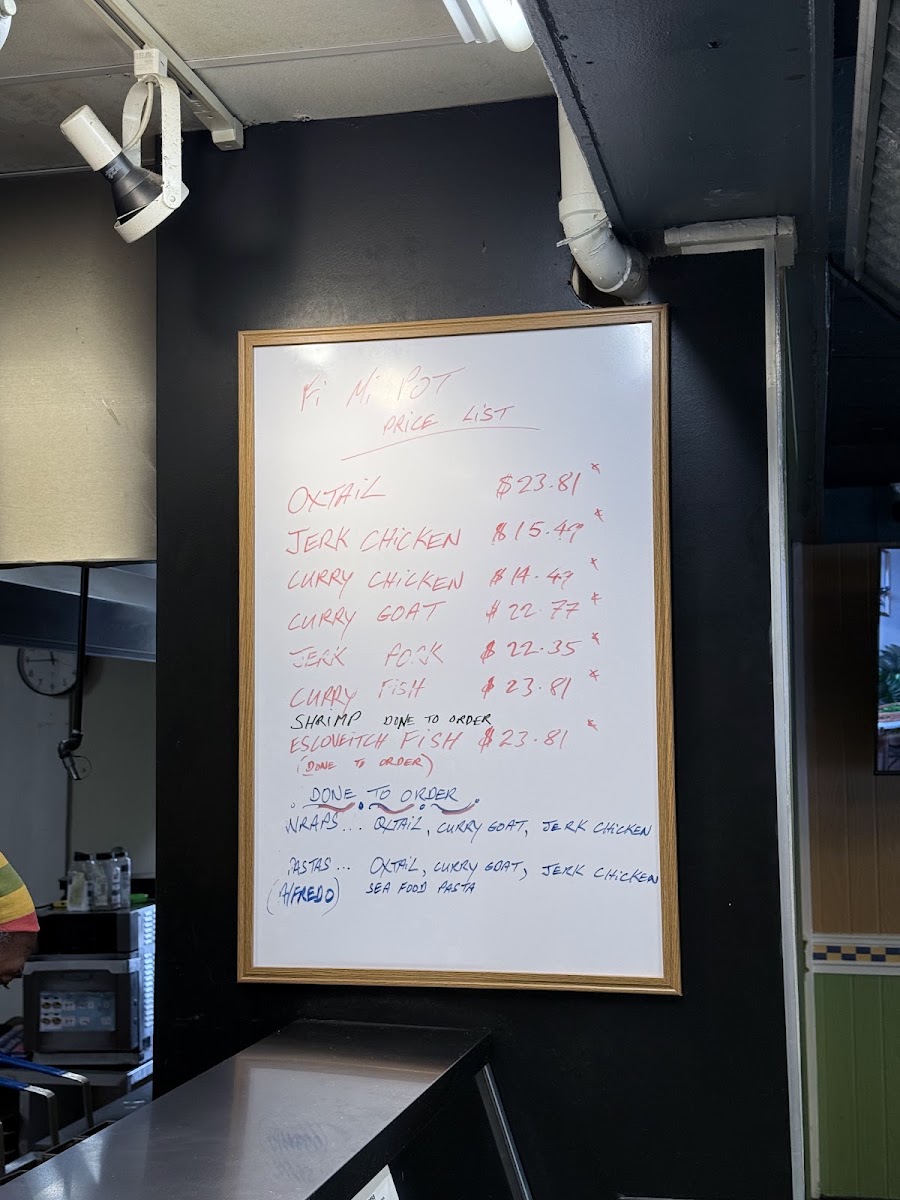 Fi Mi POT
PRICE LIST
OXTAIL $23.81*
JERK CHICKEN $15.49*
CURRY CHICKEN $14.47*
CURRY GOAT $22.77*
JERK PORK $22.35*
CURRY FISH $23.81*
SHRIMP DONE TO ORDER
ESCOVEITCH FISH $23.81*
(DONE TO ORDER)
DONE TO ORDER
WRAPS... OXTAIL, CURRY GOAT, JERK CHICKEN
PASTAS... OXTAIL, CURRY GOAT, JERK CHICKEN
(AlFREDO) SEA FOOD PASTA